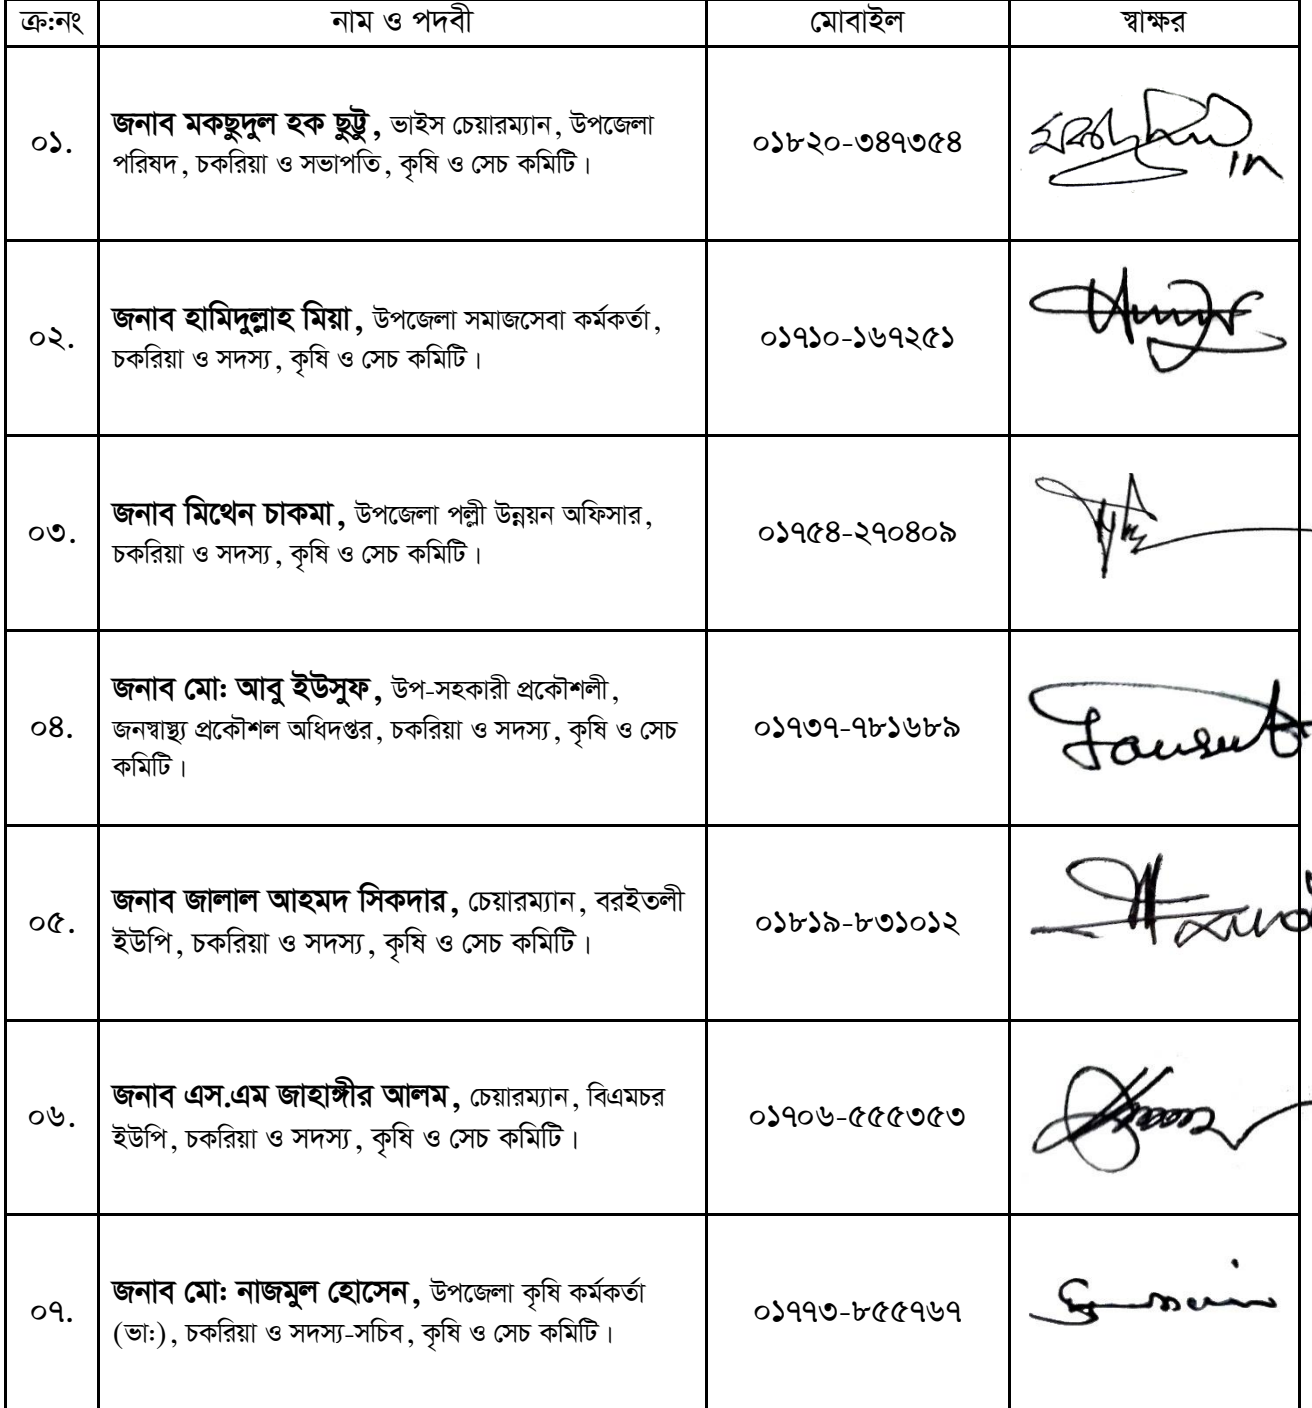 ক্র:নং নাম ও পদবী মোবাইল স্বাক্ষর
০১. জনাব মকছুদুল হক ছুট্টু, ভাইস চেয়ারম্যান, উপজেলা
পরিষদ, চকরিয়া ও সভাপতি, কৃষি ও সেচ কমিটি। ০১৮২০-৩৪৭৩৫৪
০২. জনাব হামিদুল্লাহ মিয়া, উপজেলা সমাজসেবা কর্মকর্তা,
চকরিয়া ও সদস্য, কৃষি ও সেচ কমিটি। ০১৭১০-১৬৭২৫১
০৩. জনাব মিথেন চাকমা, উপজেলা পল্লী উন্নয়ন অফিসার,
চকরিয়া ও সদস্য, কৃষি ও সেচ কমিটি। ০১৭৫৪-২৭০৪০৯
০৪. জনাব মো: আবু ইউসুফ, উপ-সহকারী প্রকৌশলী,
জনস্বাস্থ্য প্রকৌশল অধিদপ্তর, চকরিয়া ও সদস্য, কৃষি ও সেচ
কমিটি। ০১৭৩৭-৭৮১৬৮৯
০৫. জনাব জালাল আহমদ সিকদার, চেয়ারম্যান, বরইতলী
ইউপি, চকরিয়া ও সদস্য, কৃষি ও সেচ কমিটি। ০১৮১৯-৮৩১০১২
০৬. জনাব এস.এম জাহাঙ্গীর আলম, চেয়ারম্যান, বিএমচর
ইউপি, চকরিয়া ও সদস্য, কৃষি ও সেচ কমিটি। ০১৭০৬-৫৫৫৩৫৩
০৭. জনাব মো: নাজমুল হোসেন, উপজেলা কৃষি কর্মকর্তা
(ভা:), চকরিয়া ও সদস্য-সচিব, কৃষি ও সেচ কমিটি। ০১৭৭৩-৮৫৫৭৬৭